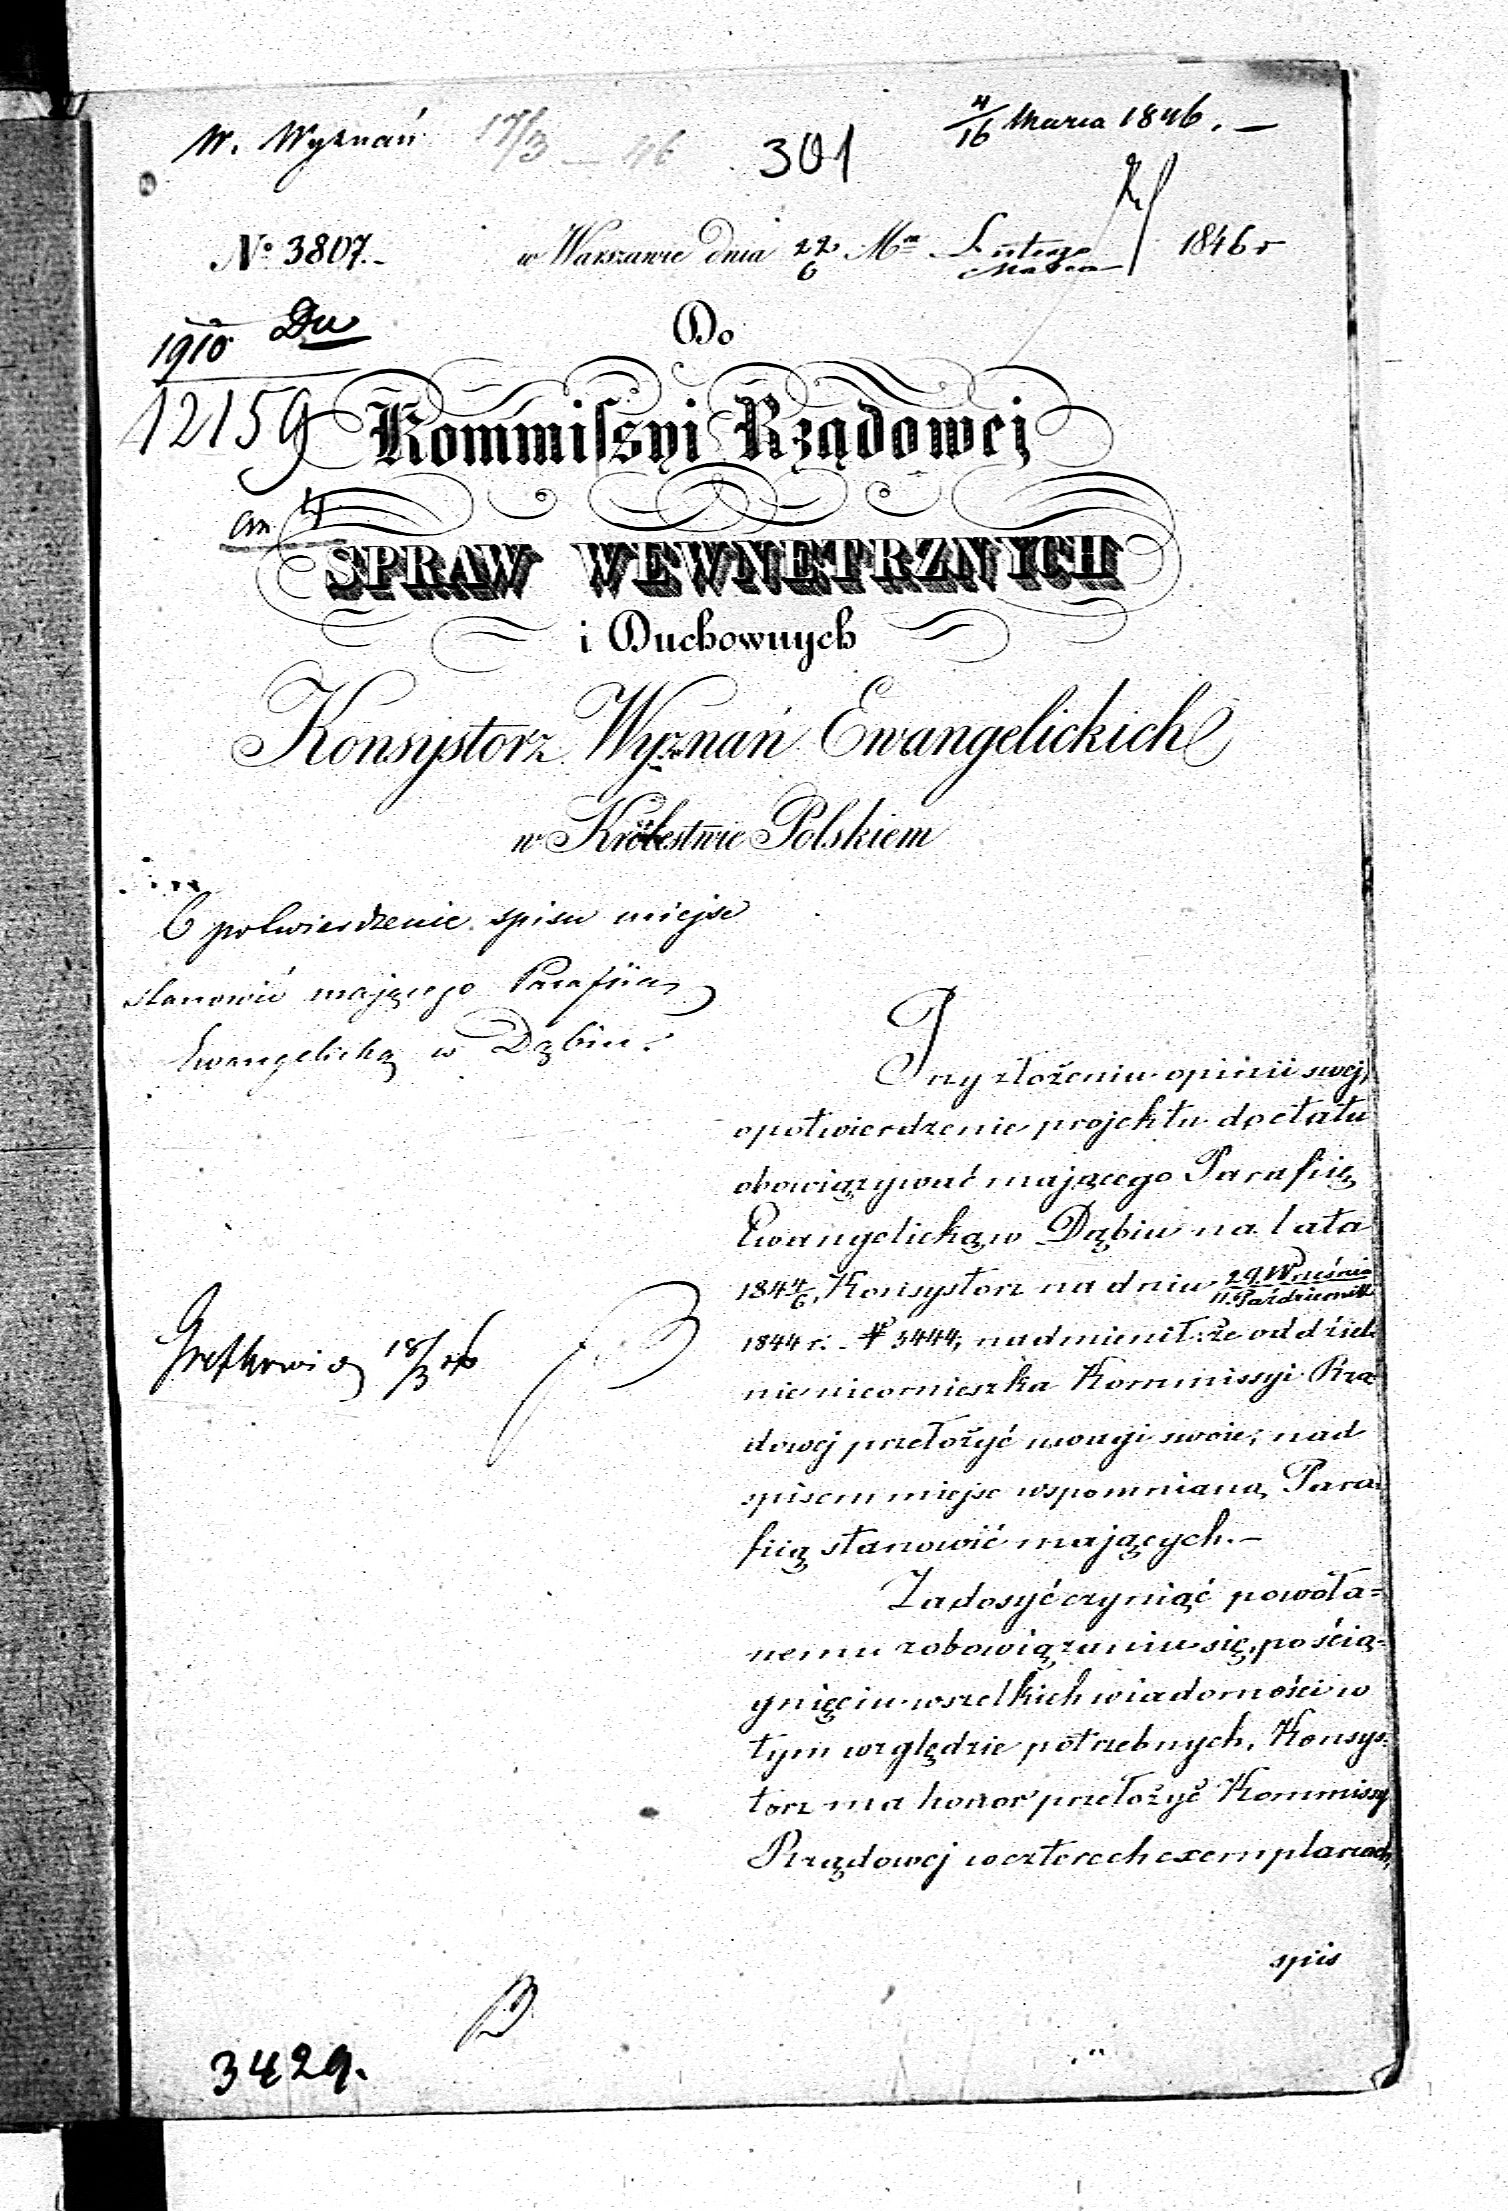 W. Wyznań 17/3 – 46 301 4/16 Marca 1846. –
№ 3807. w Warszawie dnia 22/6 Mca Lutego/Marca 1846 r
Do
1910 Du
12159
Kommissyi Rządowej
an 4
SPRAW WEWNĘTRZNYCH
i Duchownych
Konsystorz Wyznań Ewangelickich
w Królestwie Polskiem
O potwierdzenie spisu miejsc
stanowić mającego Parafiią
Ewangelicką w Dąbiu.
Przy złożeniu opinii swej,
o potwierdzenie projektu do etatu
obowiązywać mającego Parafiię
Ewangelicką w Dąbiu na lata
1844/6, Konsystorz na dniu 29 Września/11 Paździer.
1844 r. № 3444, nadmienił: że oddziel-
nie nieomieszka Kommissyi Rzą-
dowej przełożyć uwagi swoie, nad
spisem miejsc wspomnianą Para-
fiią stanowić mających. –
Zadosyć czyniąć powoła=
nemu zobowiązaniu się, po ścią=
gnięciu wszelkich wiadomości w
tym względzie potrzebnych, Konsys-
torz ma honor przełożyć Kommissyi
Rządowej w czterech exemplarzach,
spis
18/3 46
3429.